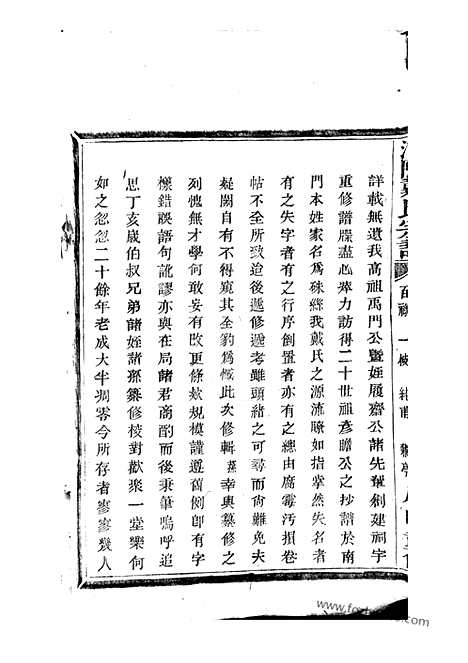 詳載無遺我高祖禹門公暨姪履齋公諸先輩剏建祠宇
重修譜牒盡心瘁力訪得二十世祖彥瞻公之抄譜於南
門本姓家名爲硃絲我戴氏之源流暸如指掌然失名者
有之失字者有之行序倒置者亦有之總由腐霉汚損卷
帖不全所致迨後遞修遞考雖頭緒之可尋而尙難免夫
疑闕自有不得窺其全豹爲憾此次修輯 幸與纂修之
列愧無才學何敢妄有改更條欵規模謹遵舊例卽有字
樣錯誤語句訛謬亦與在局諸君商酌而後秉筆嗚呼追
思丁亥歲伯叔兄弟諸姪諸孫纂修校對歡聚一堂樂何
如之忽忽二十餘年老成大半凋零今所存者寥寥幾人